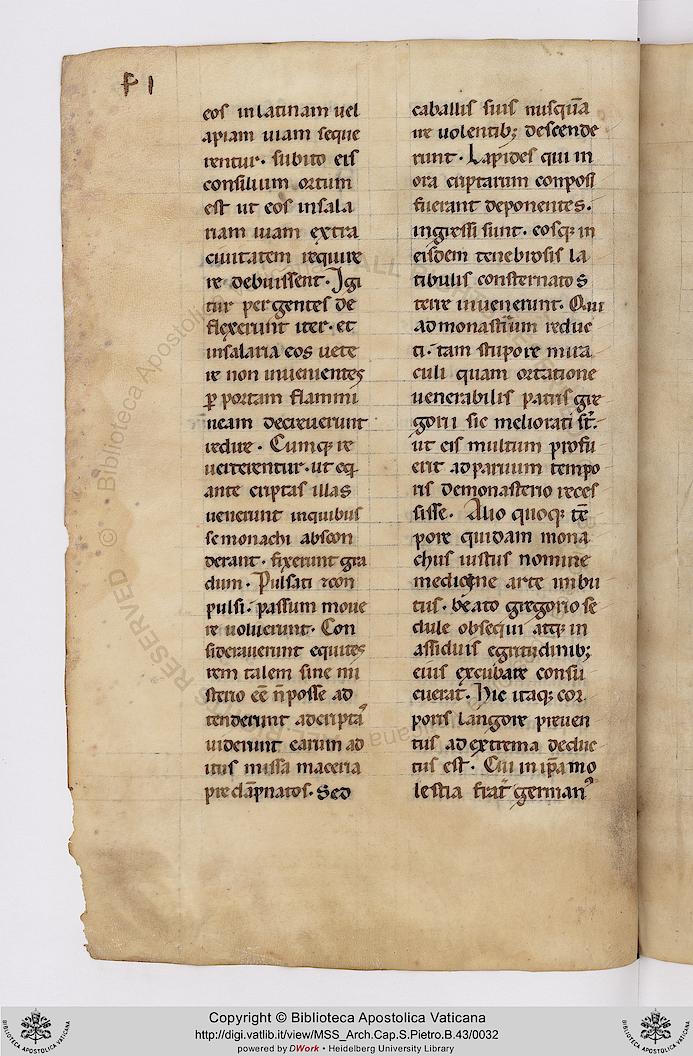 F I
eos in latinam uel
apiam uiam seque
rentur. subito eis
consilium ortum
est ut eos in sala
riam uiam extra
ciuitatem require
re debuissent. Igi
tur pergentes de
flexerunt iter. et
in salaria eos uete
re non inuenientes
ꝑ portam flammi
neam decreuerunt
redire. Cumq; re
uerterentur. ut eq
ante criptas illas
uenerunt in quibus
se monachi abscon
derant. fixerunt gra
dum. Pulsati ⁊ con
pulsi. passum moue
re uoluerunt. Con
siderauerunt equites
rem talem sine mi
sterio eē n̄ posse ad
tenderunt ad criptā
uiderunt earum ad
itus missa maceria
preclāpnatos. Sed
caballis suis nusquā
ire uolentib; descende
runt. Lapides qui in
ora criptarum conposi
fuerant deponentes.
ingressi sunt. eosq; in
eisdem tenebrosis la
tibulis consternatos
terre inuenerunt. Qui
ad monastīum reduc
ti. tam stupore mira
culi quam ortatione
uenerabilis patris gre
gorii sic meliorati st̄.
ut eis multum profu
erit ad paruum tempo
ris de monasterio reces
sisse. Alio quoq; tē
pore quidam mona
chus iustus nomine
medicine arte imbu
tus. beato gregorio se
dule obsequi atq; in
assiduis egritudinib;
eius excubare consu
euerat. Hic itaq; cor
poris langore preuen
tus ad extrema deduc
tus est. Cui in ip̄a mo
lestia frat̄ germanꝰ
Copyright © Biblioteca Apostolica Vaticana
http://digi.vatlib.it/view/MSS_Arch.Cap.S.Pietro.B.43/0032
powered by DWork • Heidelberg University Library